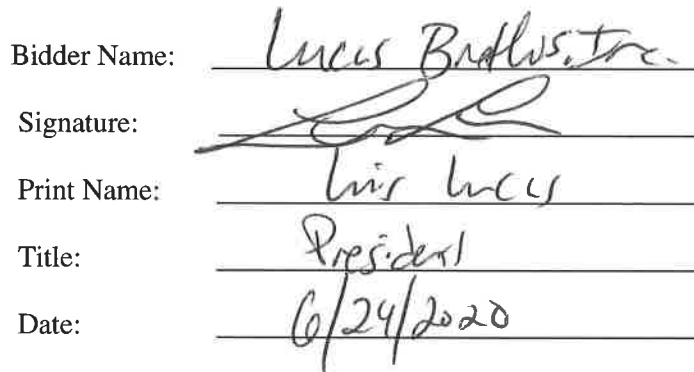 Bidder Name: Lucas Brothers, Inc.
Signature:
Print Name: Luis Lucas
Title: President
Date: 6/24/2020